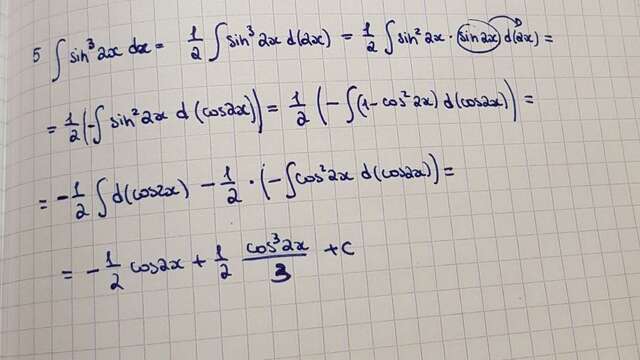 5 ∫ sin³2x dx = 1/2 ∫ sin³2x d(2x) = 1/2 ∫ sin²2x · sin2x d(2x) =
= 1/2 (-∫ sin²2x d(cos2x)) = 1/2 (-∫(1-cos²2x) d(cos2x)) =
= -1/2 ∫ d(cos2x) - 1/2 · (-∫cos²2x d(cos2x)) =
= -1/2 cos2x + 1/2 cos³2x/3 + C